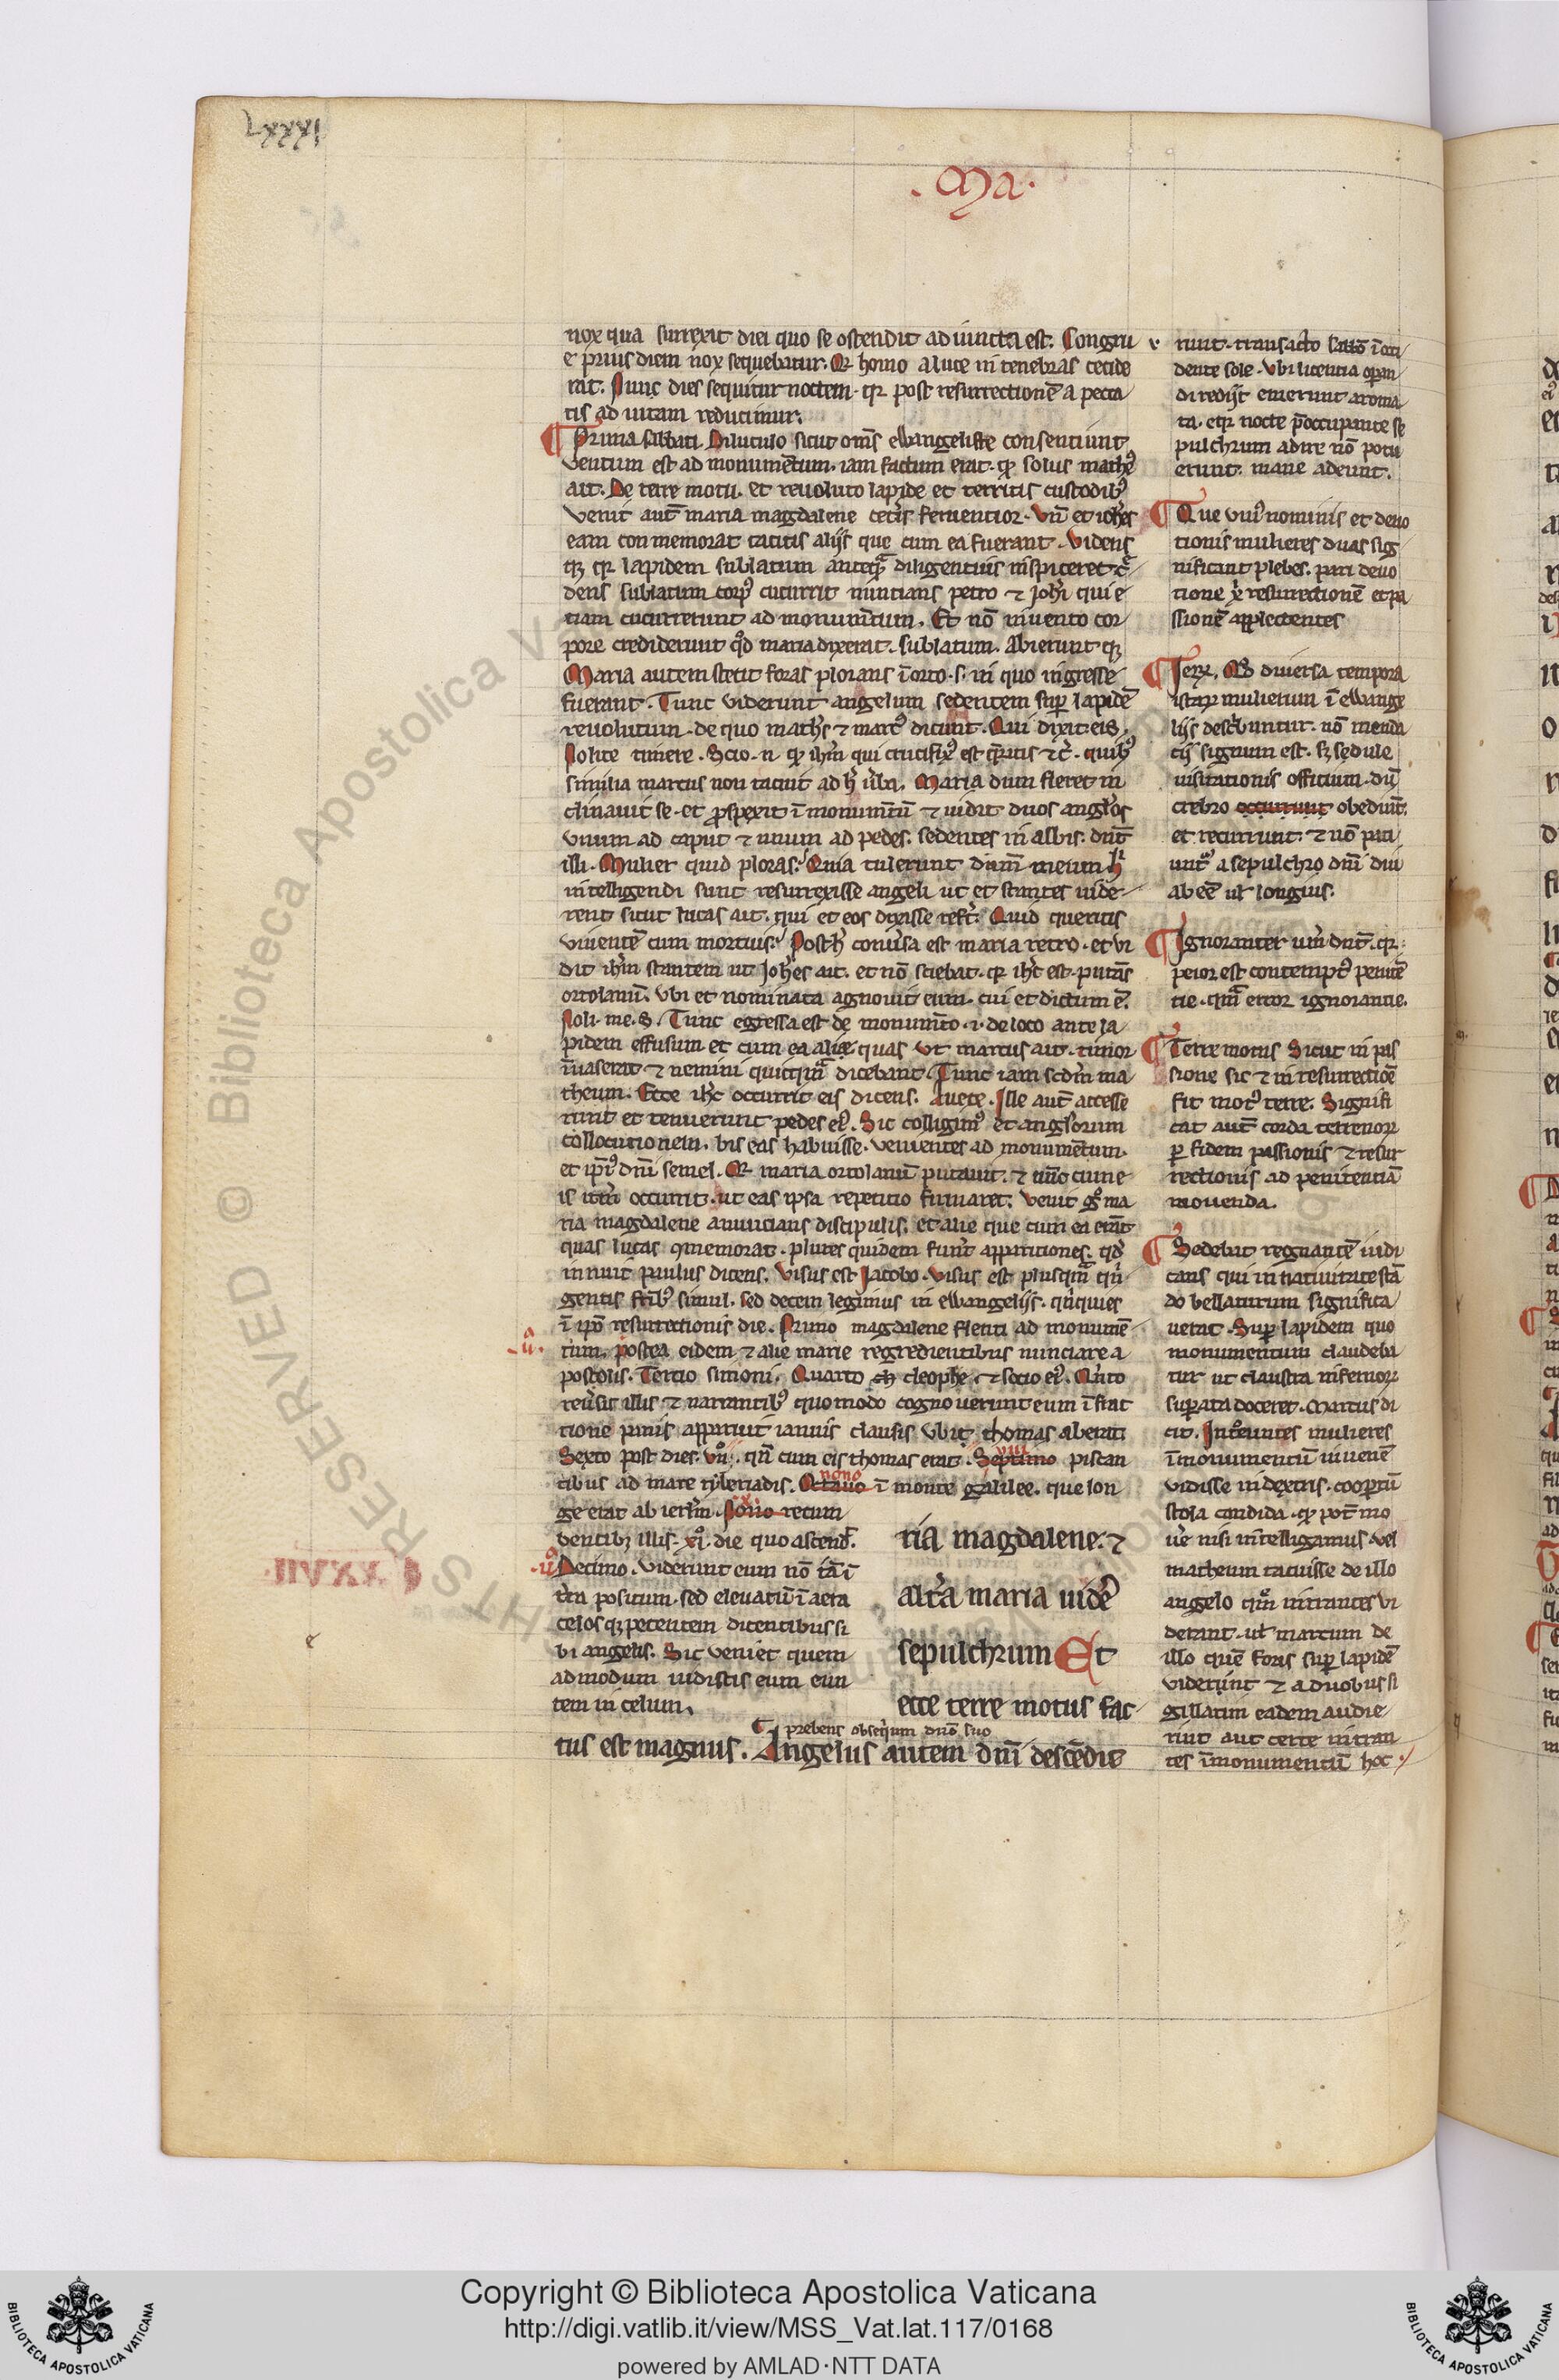 Lxxxi
.Ma.
nox qua surrexit diei quo se ostendit ad iuncta est. Congru
e prius diem nox sequebatur. Qr homo a luce in tenebras cecide
rat. Nunc dies sequitur noctem. qr post resurrectionē a pecca
tis ad uitam reducimur.
Prima sabbati. Diluculo sicut om̄s ewangeliste consentiunt
uentum est ad monumētum. iam factum erat. qꝫ solus mathe᷒
ait. De terre motu. et reuoluto lapide et territis custodib᷒
venit aut̄ maria magdalene cet̾is feruentior. Vn̄ et ioh̄es
eam con memorat tacitis alijs que cum ea fuerant. Videns
qꝫ qr lapidem sublatum anteqᷓ diligentius inspiceret c̾
dens sublatum corp᷒ cucurrit nuncians petro ⁊ Joh̄i qui e
tiam cucurrerunt ad monumētum. Et nō inuento cor
pore crediderunt qd̾ maria dixerat. sublatum. Abierunt qꝫ
Maria autem stetit foras plorans ī orto .s. in quo ingresse
fuerant. Tunc viderunt angelum sedentem suꝑ lapidē
reuolutum. de quo math̄s ⁊ marc᷒ dicunt. Qui dixit eis.
Nolite timere. Scio .n. qꝫ ih̄m qui crucifix᷒ est q̄ritis ⁊c̄. quib᷒
similia marcus non tacuit ad h̄ ūba. Maria dum fleret in
clinauit se. et ꝓspexit ī monum̄tū ⁊ uidit duos angl̄os
vnum ad caput ⁊ unum ad pedes. sedentes in albis. dn̄t
illi. Mulier quid ploras? Quia tulerunt dn̄m meum. h̄
intelligendi sunt resurrexisse angeli ut et stantes uide
rent sicut lucas ait. qui et eos dixisse refert. Quid queritis
viuentē cum mortuis? Posth̄ conūsa est maria retro. et vi
dit ih̄m stantem ut Joh̄es ait. et nō sciebat. qr ih̄c est. putās
ortolanū. Vbi et nominata agnouit eum. cui et dictum ē.
Noli. me. &. Tunc egressa est de monum̄to .i. de loco ante la
pidem effusum et cum ea aliae quas vt marcus ait. timor
inuaserat ⁊ nemini quicqᷓ dicebant. Tunc iam scdm̄ ma
theum. Ecce ih̄c occurrit eis dicens. Auete. Ille aut̄ accesse
runt et tenuerunt pedes ei᷒. Sic colligim᷒ et angl̄orum
collocutionem. bis eas habuisse. venientes ad monumētum.
et ip̄i᷒ dn̄i semel. Qr maria ortolanū putauit. ⁊ nūc eunt e
is itm̄ occurrit. ut eas ipsa repetitio firmaret. Venit g᷒ ma
ria magdalene anuncians discipulis. et alie que cum ea erāt
quas lucas ꝯmemorat. plures quidem fuer̄t appariciones. qd̾
innuit paulus dicens. Visus est Jacobo. Visus est plusqᷓ qn̄
gentis fr̄ib᷒ simul. sed decem legimus in ewangelijs. qn̄quies
ī ip̄o resurrectionis die. Primo magdalene flenti ad monumē
tum. postea eidem ⁊ alie marie regredientibus nunciare a
postolis. Tercio simoni. Quarto cleophe. ⁊ socio ei᷒. Qn̄to
reūsis illis ⁊ narrantib᷒ quomodo cognouerunt eum ī frac
tione panis apparuit ianuis clausis ubi thomas aberat
Sexto post dies. viii. qn̄ cum eis thomas erat. Septimo piscan
tibus ad mare tyberiadis. Octauo ī monte galilee. que lon
nono
ge erat ab ierl̄m. Nono recum
bentibꝫ illis. xi. die quo ascend̄.
Decimo. Viderunt eum nō iā ī
t̄ra positum. sed eleuatū ī aera
celosqꝫ petentem dicentibus si
bi angelis. Sic veniet quem
ad modum uidistis eum eun
tem in celum.
ria magdalene. ⁊
alt̄a maria uidē
sepulchrum Et
ecce terre motus fac
prebens obsequium dn̄o suo
tus est magnus. Angelus autem dn̄i descēdit
runt. transacto sabb̄o ī occi
dente sole. Vbi licentia oꝑan
di redijt emerunt aroma
ta. et qr nocte p̄occupante se
pulchrum adire nō potu
erunt. mane adeunt.
Que vni᷒ nominis et deuo
tionis mulieres duas sig
nificant plebes. pari deuo
tione x̄i resurrectionē et pa
ssionē applectentes
Jerꝰ. Qd̾ diuersa tempora
istaꝝ mulierum ī ewange
lijs describuntur. nō menda
cij signum est. sꝫ sedule
uisitationis officium. dū
crebro occurrunt obediūt.
et recurrunt. ⁊ nō pati
unt᷒ a sepulchro dn̄i diu
abeē ul̄ longius.
Ignoranter um̄ dn̄t. qr
peior est contempt᷒ peniten
tie. qᷓm error ignorantie.
Terre motus Sicut in pas
sione sic ⁊ in resurrectiōe
fit mot᷒ terre. Signifi
cat aut̄ corda terrenoꝝ
ꝑ fidem passionis ⁊ resur
rectionis ad penitentiā
mouenda.
Sedebat regnantē iudi
cans qui in natiuitate stā
do bellaturum significa
uerat. Suꝑ lapidem quo
monumentum claudeba
tur ut claustra inferioꝝ
suꝑata doceret. Marcus di
cit. Introeuntes mulieres
ī monumentū iuuenē
vidisse in dextris. cooꝑtū
stola candida. qꝫ pot̄ mo
uē nisi intelligamus. vel
matheum tacuisse de illo
angelo quē intrantes vi
derant. ul̄ marcum de
illo quē foris suꝑ lapidē
viderunt ⁊ a duobus si
gillatim eadem audie
rint aut certe intran
tes ī monumentū hoc
Copyright © Biblioteca Apostolica Vaticana
http://digi.vatlib.it/view/MSS_Vat.lat.117/0168
powered by AMLAD·NTT DATA